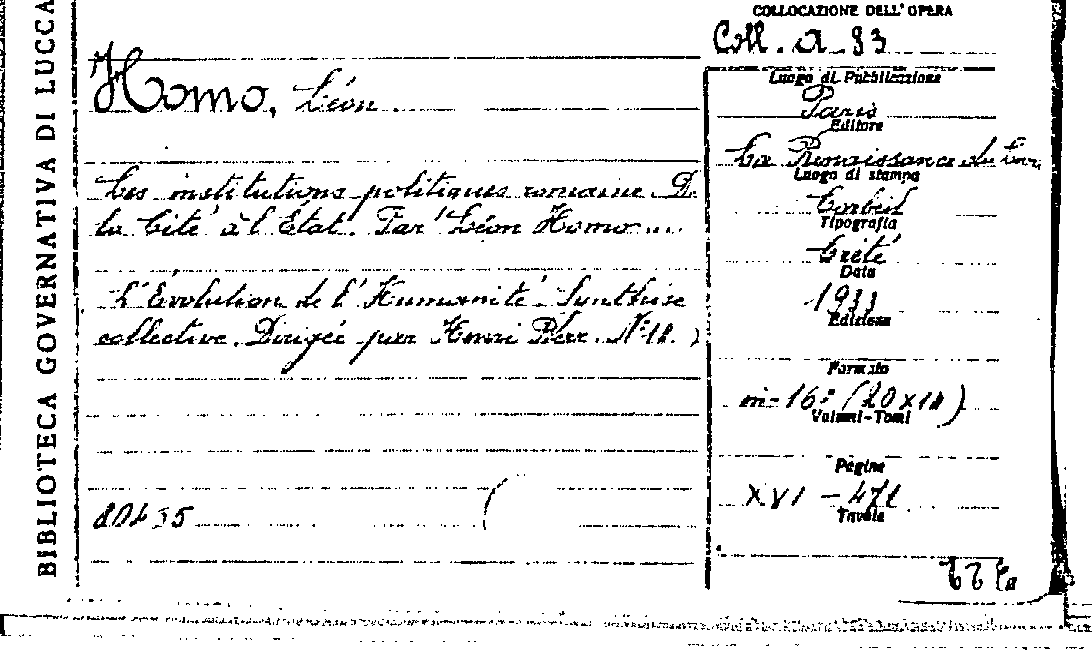 BIBLIOTECA GOVERNATIVA DI LUCCA
COLLOCAZIONE DELL'OPERA
Coll. A 93
Homo, Léon.
Les institutions politiques romaine. D.
la Cité à l'État. Par Léon Homo...
L'Évolution de l'Humanité. Synthèse
collective. Dirigée par Henri Berr. N° 18. )
Luogo di Pubblicazione
Paris
Editore
La Renaissance du Livr
Luogo di stampa
Corbeil
Tipografia
Crété
Data
1933
Edizione
Formato
in-16° (20x18)
Volumi-Tomi
Pagine
XVI - 471
Tavole